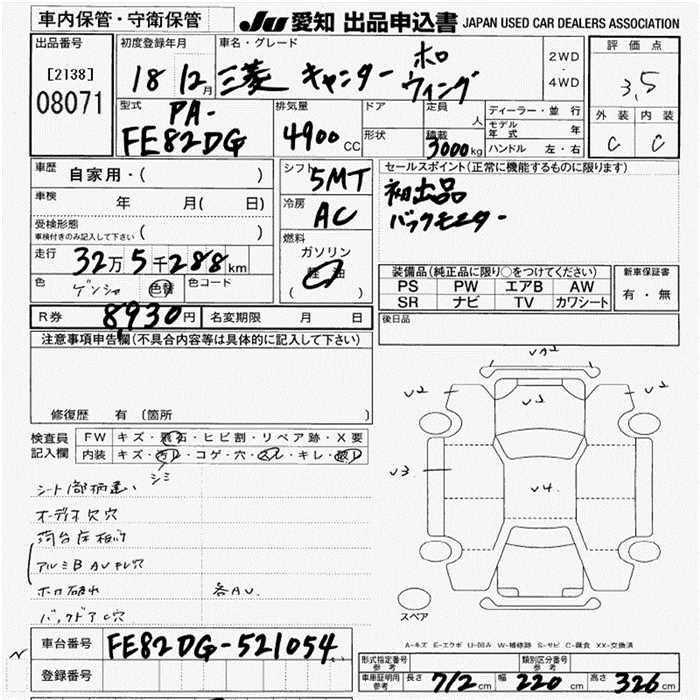 車内保管・守衛保管
JU 愛知 出品申込書 JAPAN USED CAR DEALERS ASSOCIATION
出品番号
[2138]
08071
初度登録年月
18 12月
車名・グレード
三菱 キャンター ホロ
ウィング
2WD
4WD
評価点
3,5
外装 内装
C C
型式
PA-
FE82DG
排気量
4900 CC
ドア
形状
定員
人
積載
3000kg
ディーラー・並行
モデル
年式 年
ハンドル 左・右
車歴
自家用・( )
車検
年 月( 日)
受検形態
車検付きのみ記入して下さい ( )
走行 32万5千288km
色 ゲンシャ 色替 色コード
シフト
5MT
冷房
AC
燃料
ガソリン
軽油
( )
セールスポイント(正常に機能するものに限ります)
初出品
バックモニター
装備品(純正品に限り○をつけてください)
PS PW エアB AW
SR ナビ TV カワシート
新車保証書
有・無
R券 8,930円 名変期限 月 日
後日品
注意事項申告欄(不具合内容等は具体的に記入して下さい)
修復歴 有(箇所 )
検査員
記入欄
FW キズ・飛石・ヒビ割・リペア跡・X要
内装 キズ・汚レ・コゲ・穴・スレ・キレ・破レ
シミ
シート部柄違い
オーディオ欠穴
荷台床
アルミB AUキレ穴
ホロ破れ 各AU.
バックドアC穴
U2
U2
U3
U3
U4
スペア
A-キズ E-エクボ U-凹み W-補修跡 S-サビ C-腐食 XX-交換済
車台番号 FE82DG-521054
登録番号
型式指定番号
参考
類別区分番号
参考
車庫証明用
参考
長さ 712cm 幅 220cm 高さ 326cm